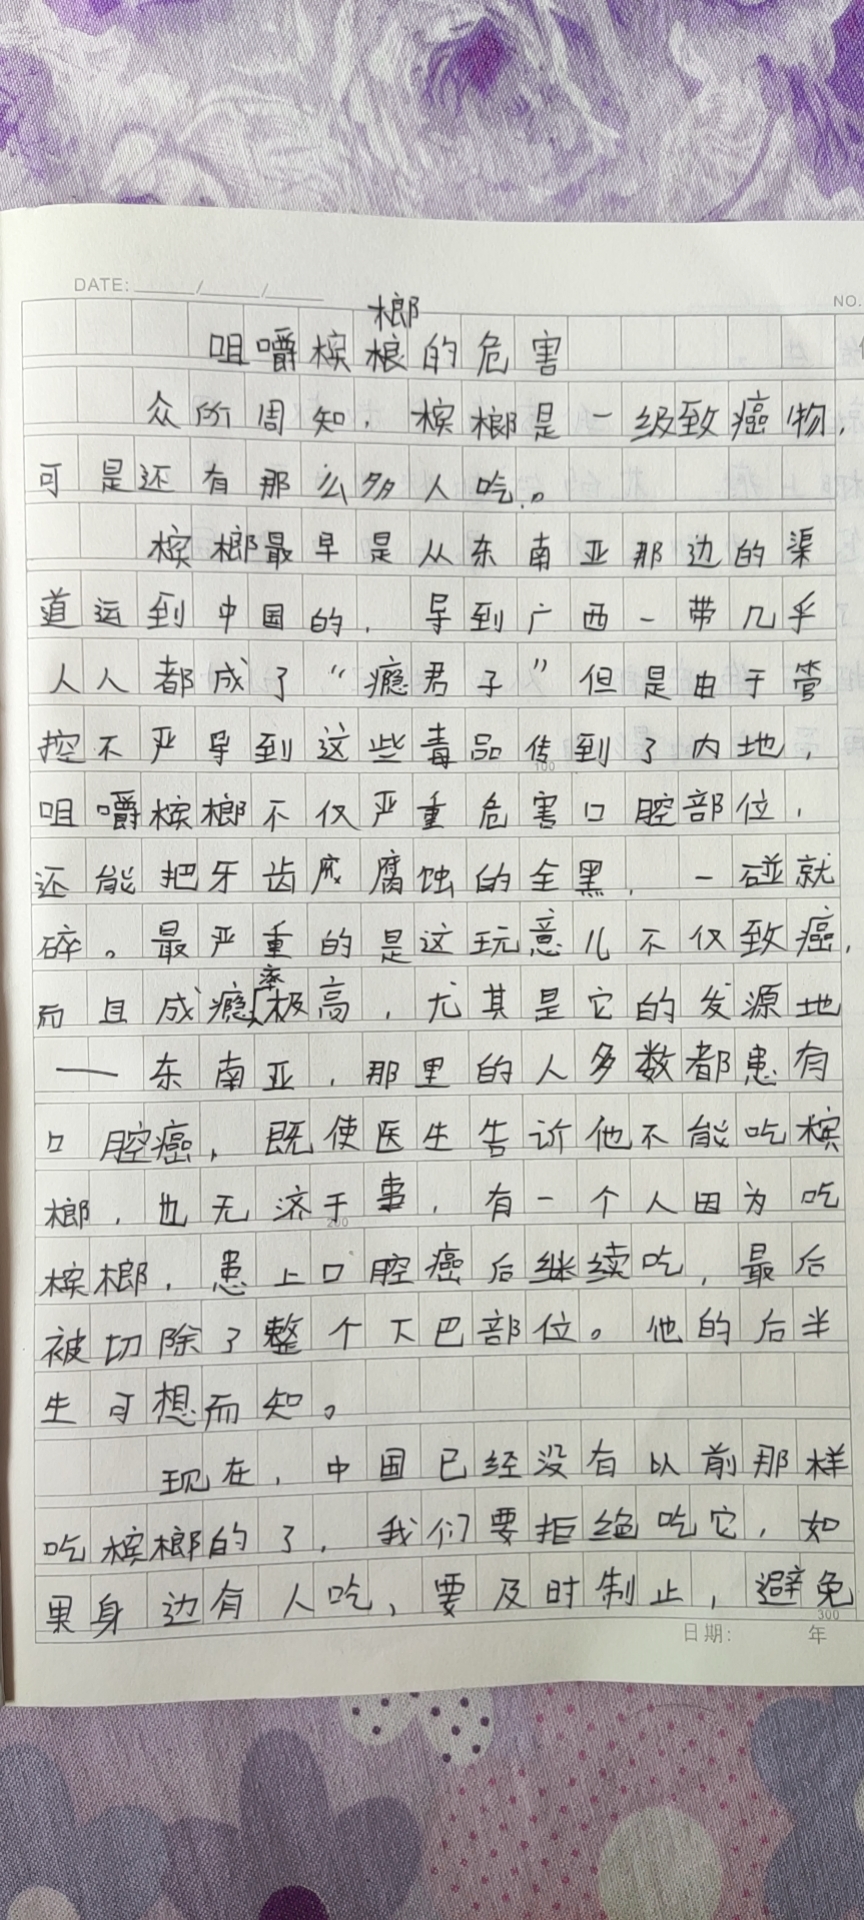 DATE: / /
NO.
榔
咀嚼槟榔的危害
众所周知，槟榔是一级致癌物，
可是还有那么多人吃。
槟榔最早是从东南亚那边的渠
道运到中国的，导到广西一带几乎
人人都成了“瘾君子”但是由于管
控不严导到这些毒品传到了内地，
咀嚼槟榔不仅严重危害口腔部位，
还能把牙齿腐蚀的全黑，一碰就
碎。最严重的是这玩意儿不仅致癌，
而且成瘾率极高，尤其是它的发源地
——东南亚，那里的人多数都患有
口腔癌，既使医生告诉他不能吃槟
榔，也无济于事，有一个人因为吃
槟榔，患上口腔癌后继续吃，最后
被切除了整个下巴部位。他的后半
生可想而知。
现在，中国已经没有以前那样
吃槟榔的了，我们要拒绝吃它，如
果身边有人吃，要及时制止，避免
100
200
300
日期: 年